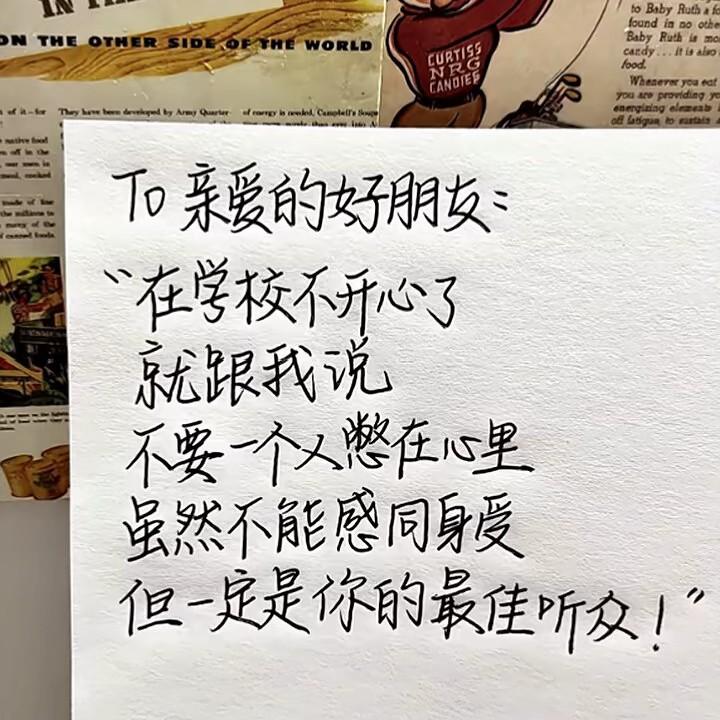 IN T
ON THE OTHER SIDE OF THE WORLD
CURTISS
NRG
CANDIES
to Baby Ruth a fo
found in no othe
Baby Ruth is mo
candy... it is also
food.
Whenever you eat
you are providing yo
energizing elements
off fatigue, to sustain
of it—for
native food
on off in the
our men in
meal, cooked
They have been developed by Army Quarter-
of energy is needed, Campbell's Soups
made of fine
the millions to
many of the
of canned foods.
To 亲爱的好朋友:
“在学校不开心了
就跟我说
不要一个人憋在心里
虽然不能感同身受
但一定是你的最佳听众!”